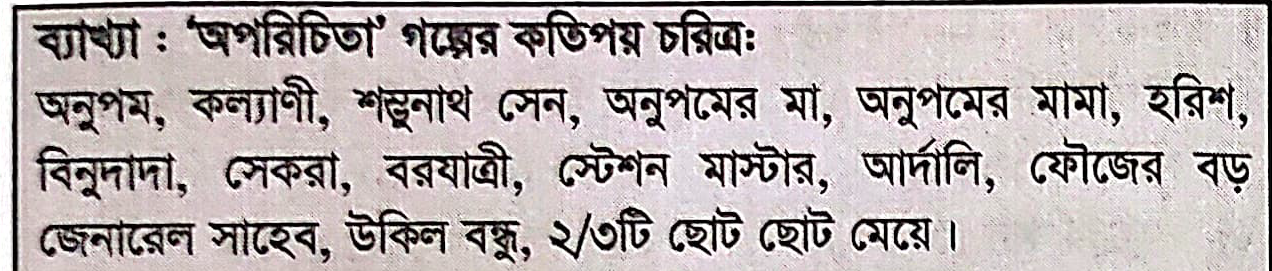 ব্যাখ্যা : ‘অপরিচিতা’ গল্পের কতিপয় চরিত্রঃ
অনুপম, কল্যাণী, শম্ভুনাথ সেন, অনুপমের মা, অনুপমের মামা, হরিশ,
বিনুদাদা, সেকরা, বরযাত্রী, স্টেশন মাস্টার, আর্দালি, ফৌজের বড়
জেনারেল সাহেব, উকিল বন্ধু, ২/৩টি ছোট ছোট মেয়ে।